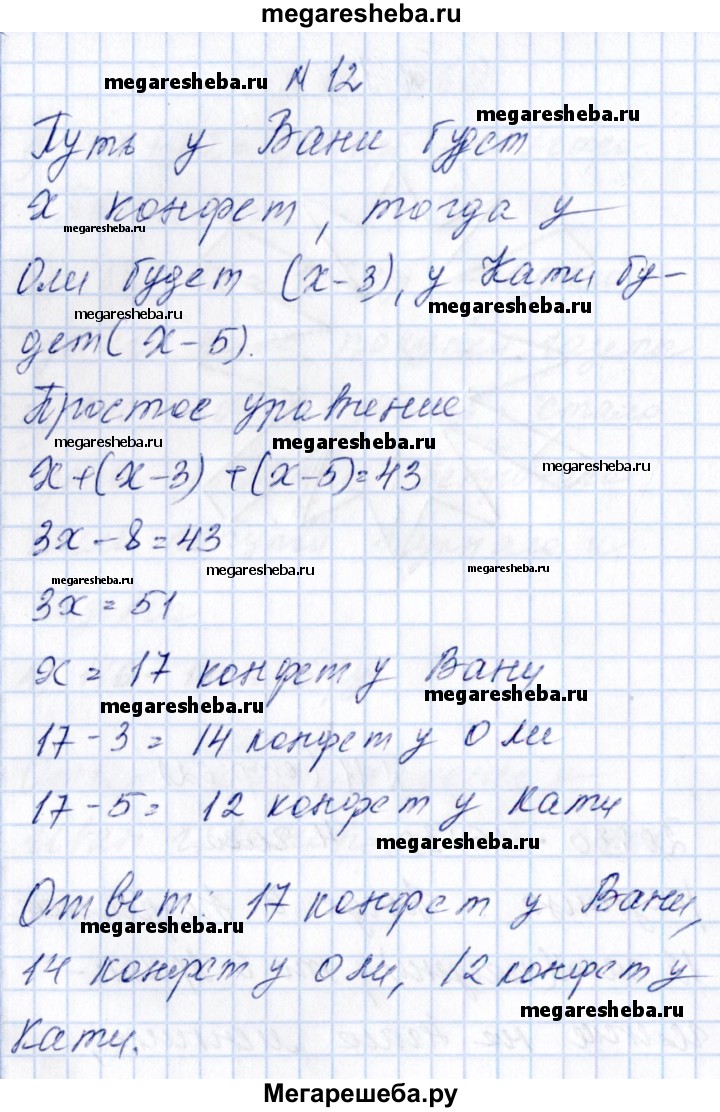 megaresheba.ru
megaresheba.ru № 12
megaresheba.ru
Путь у Вани будет
х конфет, тогда у
megaresheba.ru
Оли будет (х-3), у Кати бу-
megaresheba.ru
megaresheba.ru
дет (х-5).
Простое уравнение
megaresheba.ru
megaresheba.ru
megaresheba.ru
х+(х-3)+(х-5)=43
3х-8=43
megaresheba.ru
megaresheba.ru
megaresheba.ru
3х=51
х=17 конфет у Вани
megaresheba.ru
megaresheba.ru
17-3=14 конфет у Оли
17-5=12 конфет у Кати
megaresheba.ru
Ответ: 17 конфет у Вани,
megaresheba.ru
14 конфет у Оли, 12 конфет у
megaresheba.ru
Кати.
Мегарешеба.ру